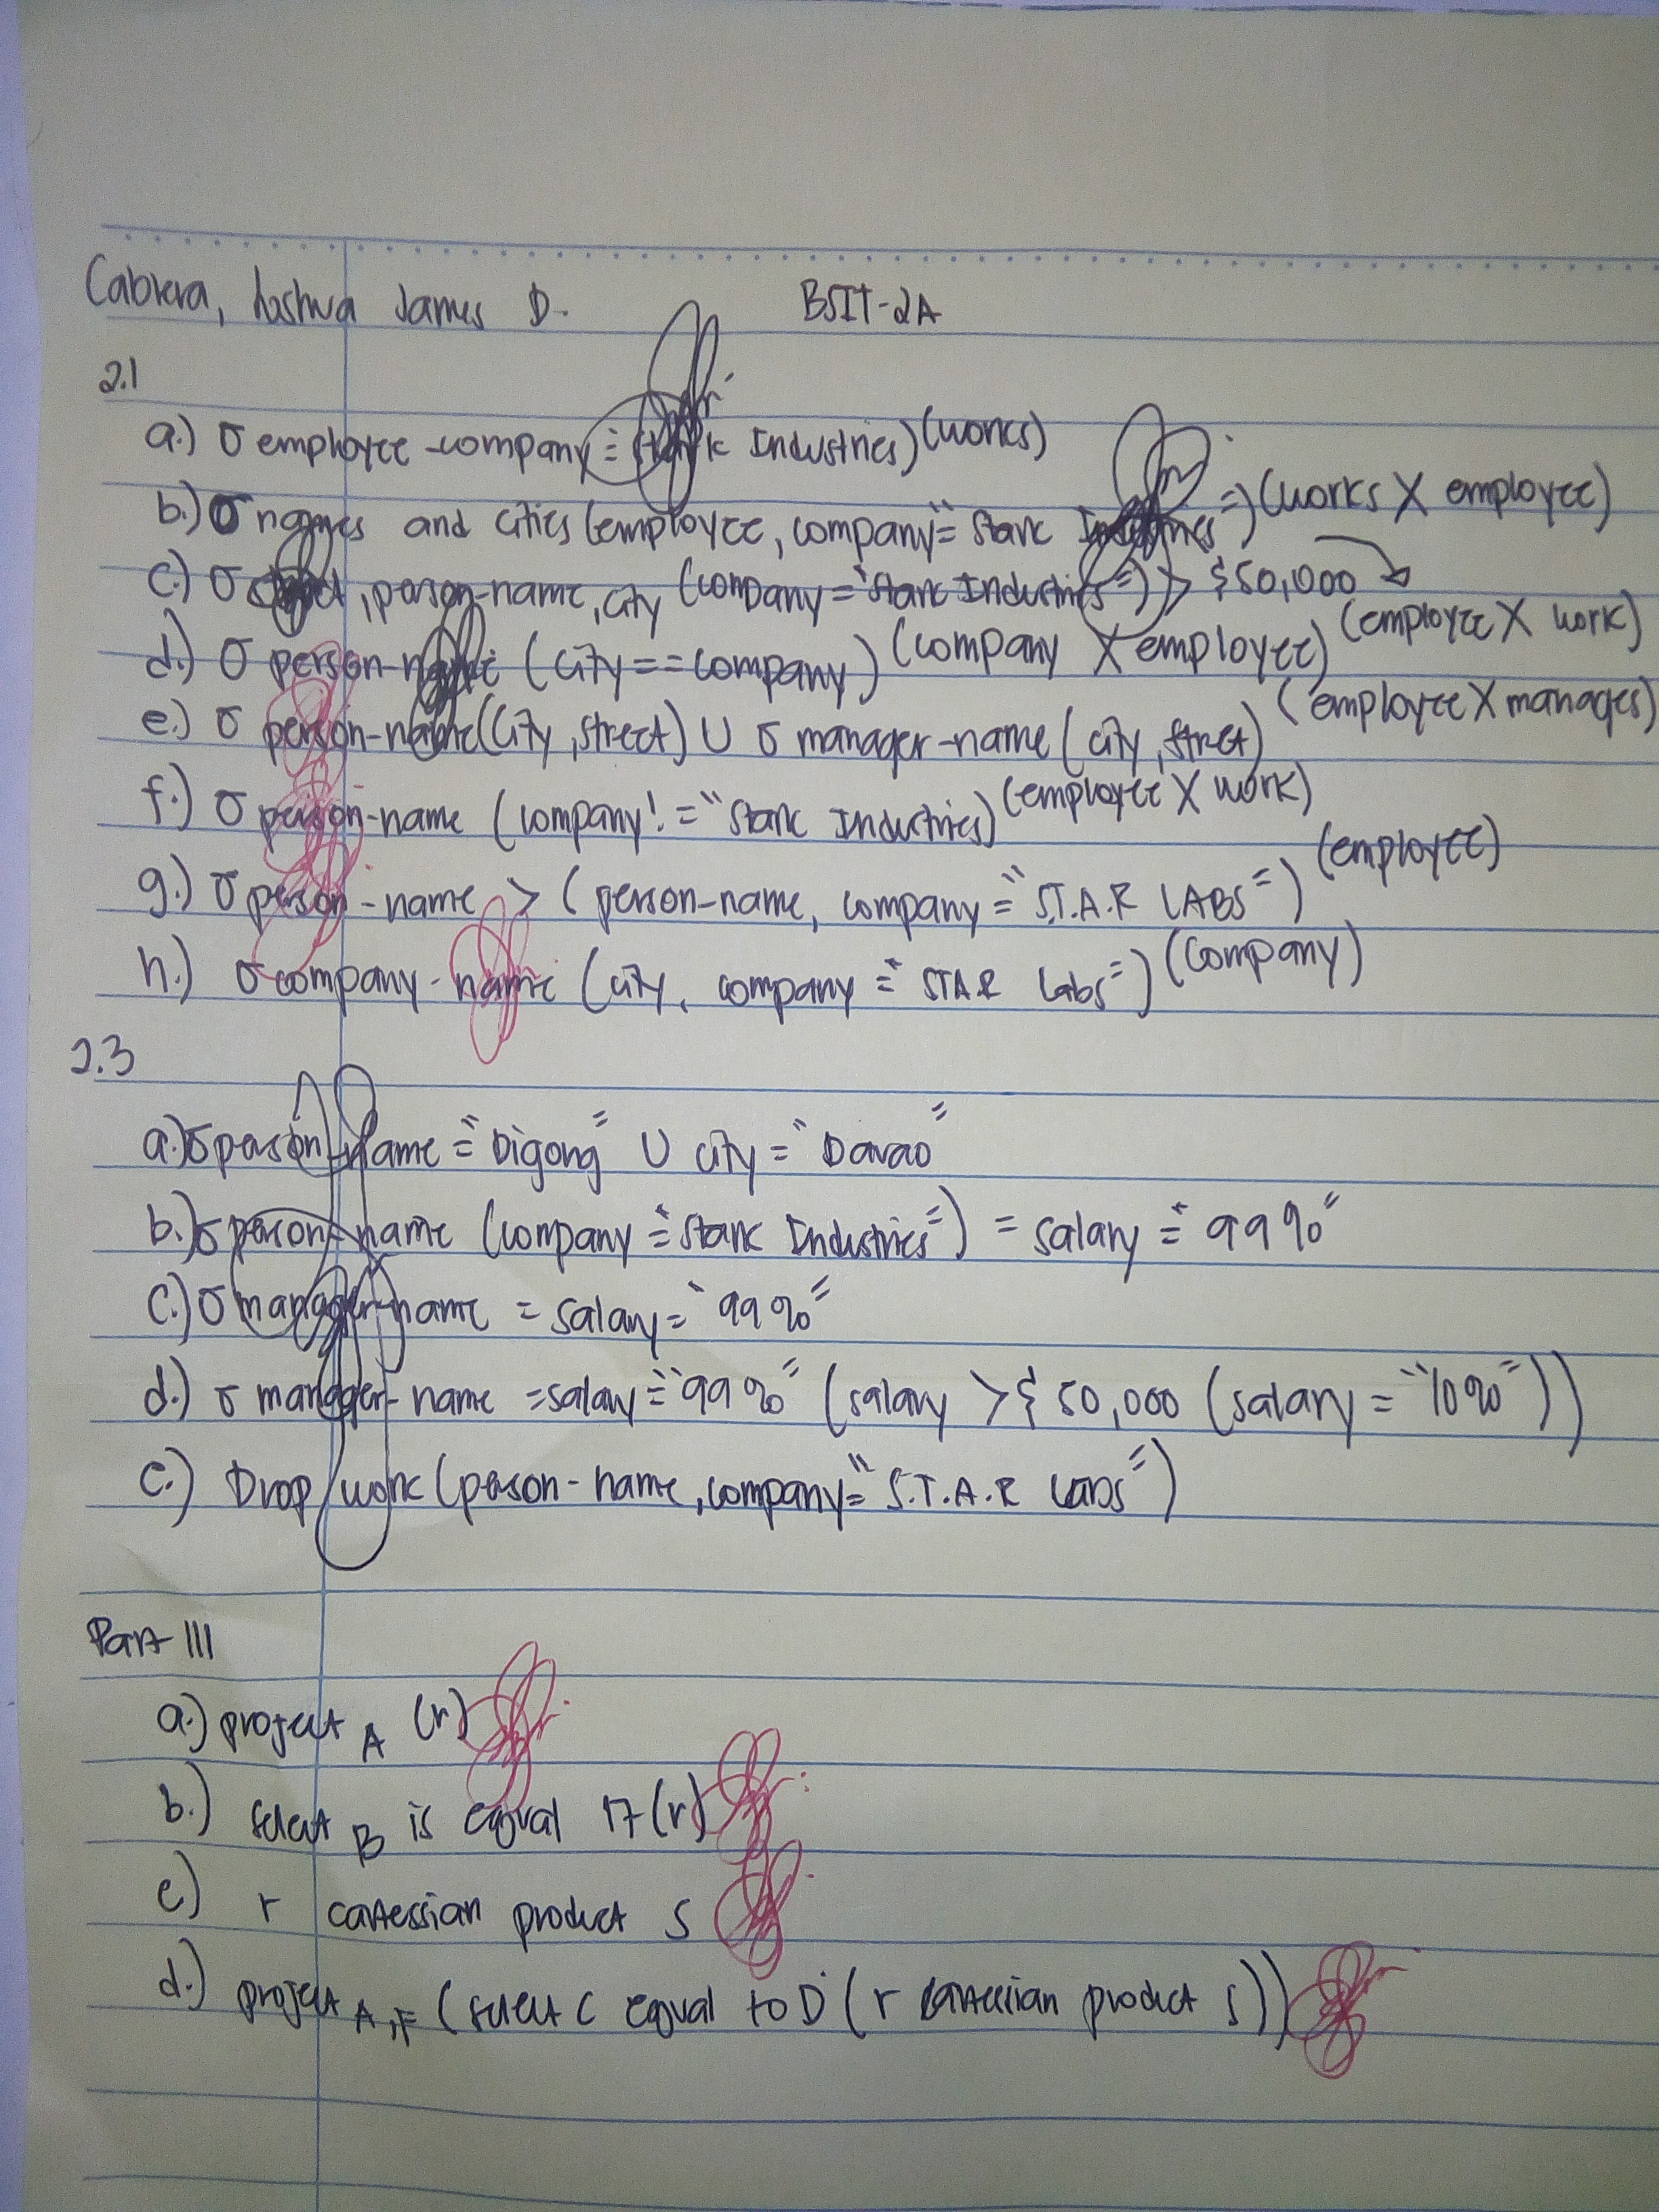 Cabrera, Joshua James D. BSIT-2A
2.1
a.) σ employee-company = Stark Industries) (works)
b.) σ names and cities (employee, company="Stark Industries") (works X employee)
c.) σ , person-name, city (company="Stark Industries")) > $50,000
(employee X work)
d.) σ person-name (city==company) (company X employee)
e.) σ person-name (city, street) U σ manager-name (city, stret) (employee X manages)
f.) σ person-name (company! = "Stark Industries) (employee X work)
g.) σ person-name > (person-name, company = "S.T.A.R LABS") (employee)
h.) σ company-name (city, company = "STAR Labs") (company)
2.3
a.) σ person-name = "Digong" U city = "Davao"
b.) σ person-name (company = "Stark Industries") = salary = "99%"
c.) σ manager-name = salary = "99%"
d.) σ manager-name = salary = "99%" (salary > $50,000 (salary = "10%"))
e.) Drop work (person-name, company="S.T.A.R Labs")
Part III
a.) project A (r)
b.) select B is equal 17 (r)
c) r cartessian product s
d.) project A,F (select C equal to D (r cartessian product s))